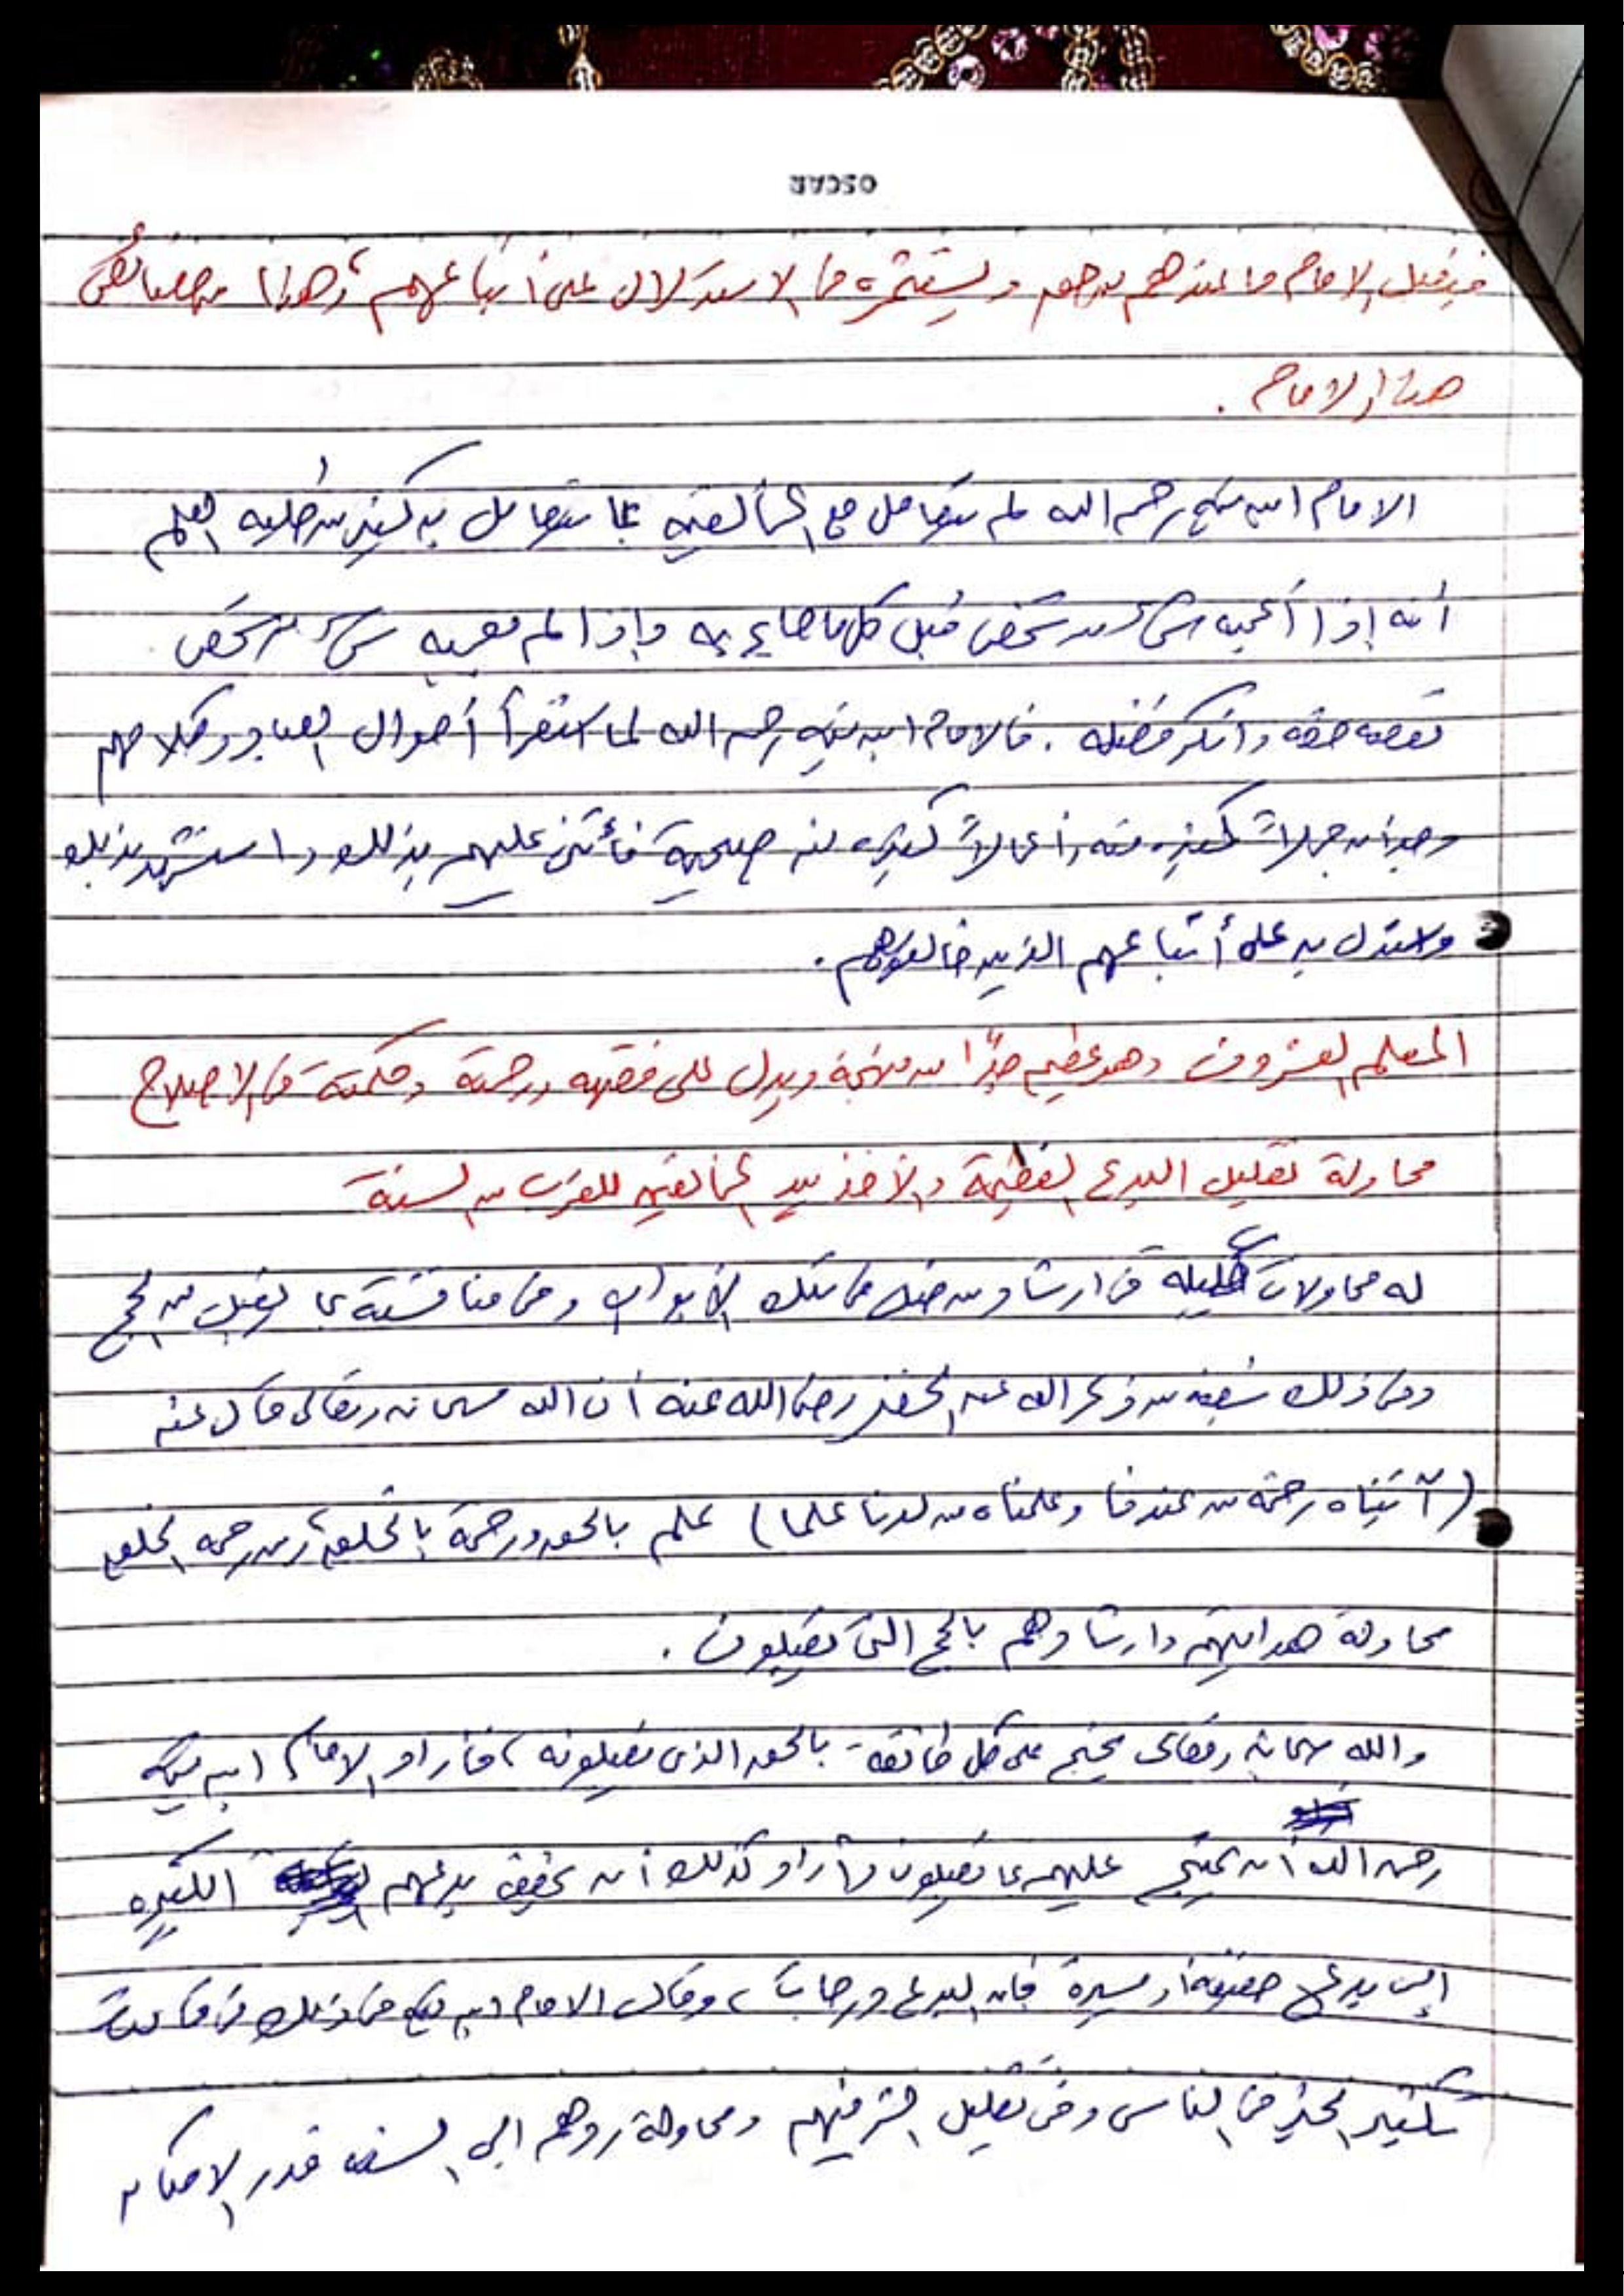 OSCAR
فيقبل الامام ما عندهم من حق ويستثمره في الاستدلال على أتباعهم، وهذا من خصائص
هذا الامام .
الامام ابن تيمية رحمه الله لم يتعامل مع المخالفين بما يتعامل به كثير من طلبه العلم
أنه إذا أعجبه شيء من شخص قبل كل ما جاء به وإذا لم يعجبه شيء من شخص
نقصه حقه وانكر فضله . فالامام ابن تيميه رحمه الله لما استقرأ أحوال العباد وكلامهم
وجد أن جملاً كثيره منه وأعمالاً كثيره منه صحيحة فأثنى عليهم بذلك واستشهد بذلك
واستدل به على أتباعهم الذين خالفوهم .
المعلم العشرون وهو عظيم جدًا من منهجه ويدل على فقهه ورحمته وحكمته في الاصلاح
محاولة تقليل البدع العظيمة والأخذ بيد المخالفين للقرب من السنة
له محاولات جليله في ارشاد من ضل في تلك الأبواب وفي مناقشته بما يقبل من الحجج
وفي ذلك شبه من ذكر الله عن الخضر رضي الله عنه أن الله سبحانه وتعالى قال عنه
(آتيناه رحمة من عندنا وعلمناه من لدنا علما) علم بالحق ورحمة بالخلق، ومن رحمه الخلق
محاولة هدايتهم وارشادهم بالحجج التي يقبلون .
والله سبحانه وتعالى يحتج على كل طائفة بالحق الذي يقبلونه، فأراد الامام ابن تيمية
رحمه الله أن يحتج عليهم بما يقبلون وأراد كذلك أن يخفف بدعهم الكبيره
إلى بدع خفيفة أو يسيرة فإن البدع درجات، وقال الامام ابن تيمية في ذلك في قاعدة
تكثير الخير في الناس وفي تقليل الشر فيهم ومحاولة ردهم الى السنه قدر الامكان